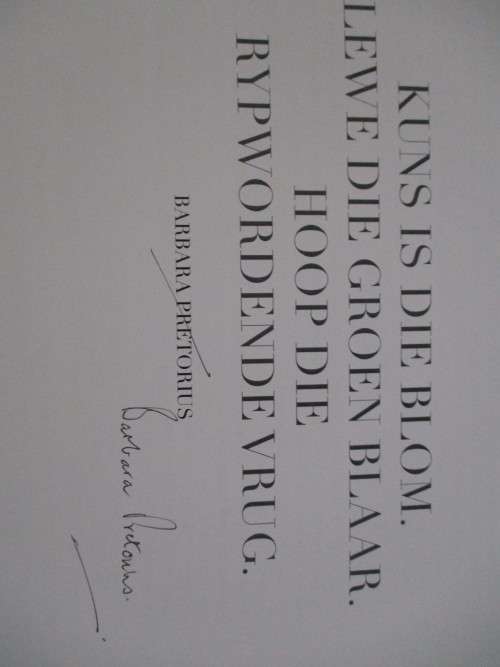 KUNS IS DIE BLOM.
LEWE DIE GROEN BLAAR.
HOOP DIE
RYPWORDENDE VRUG.
BARBARA PRETORIUS
Barbara Pretorius.